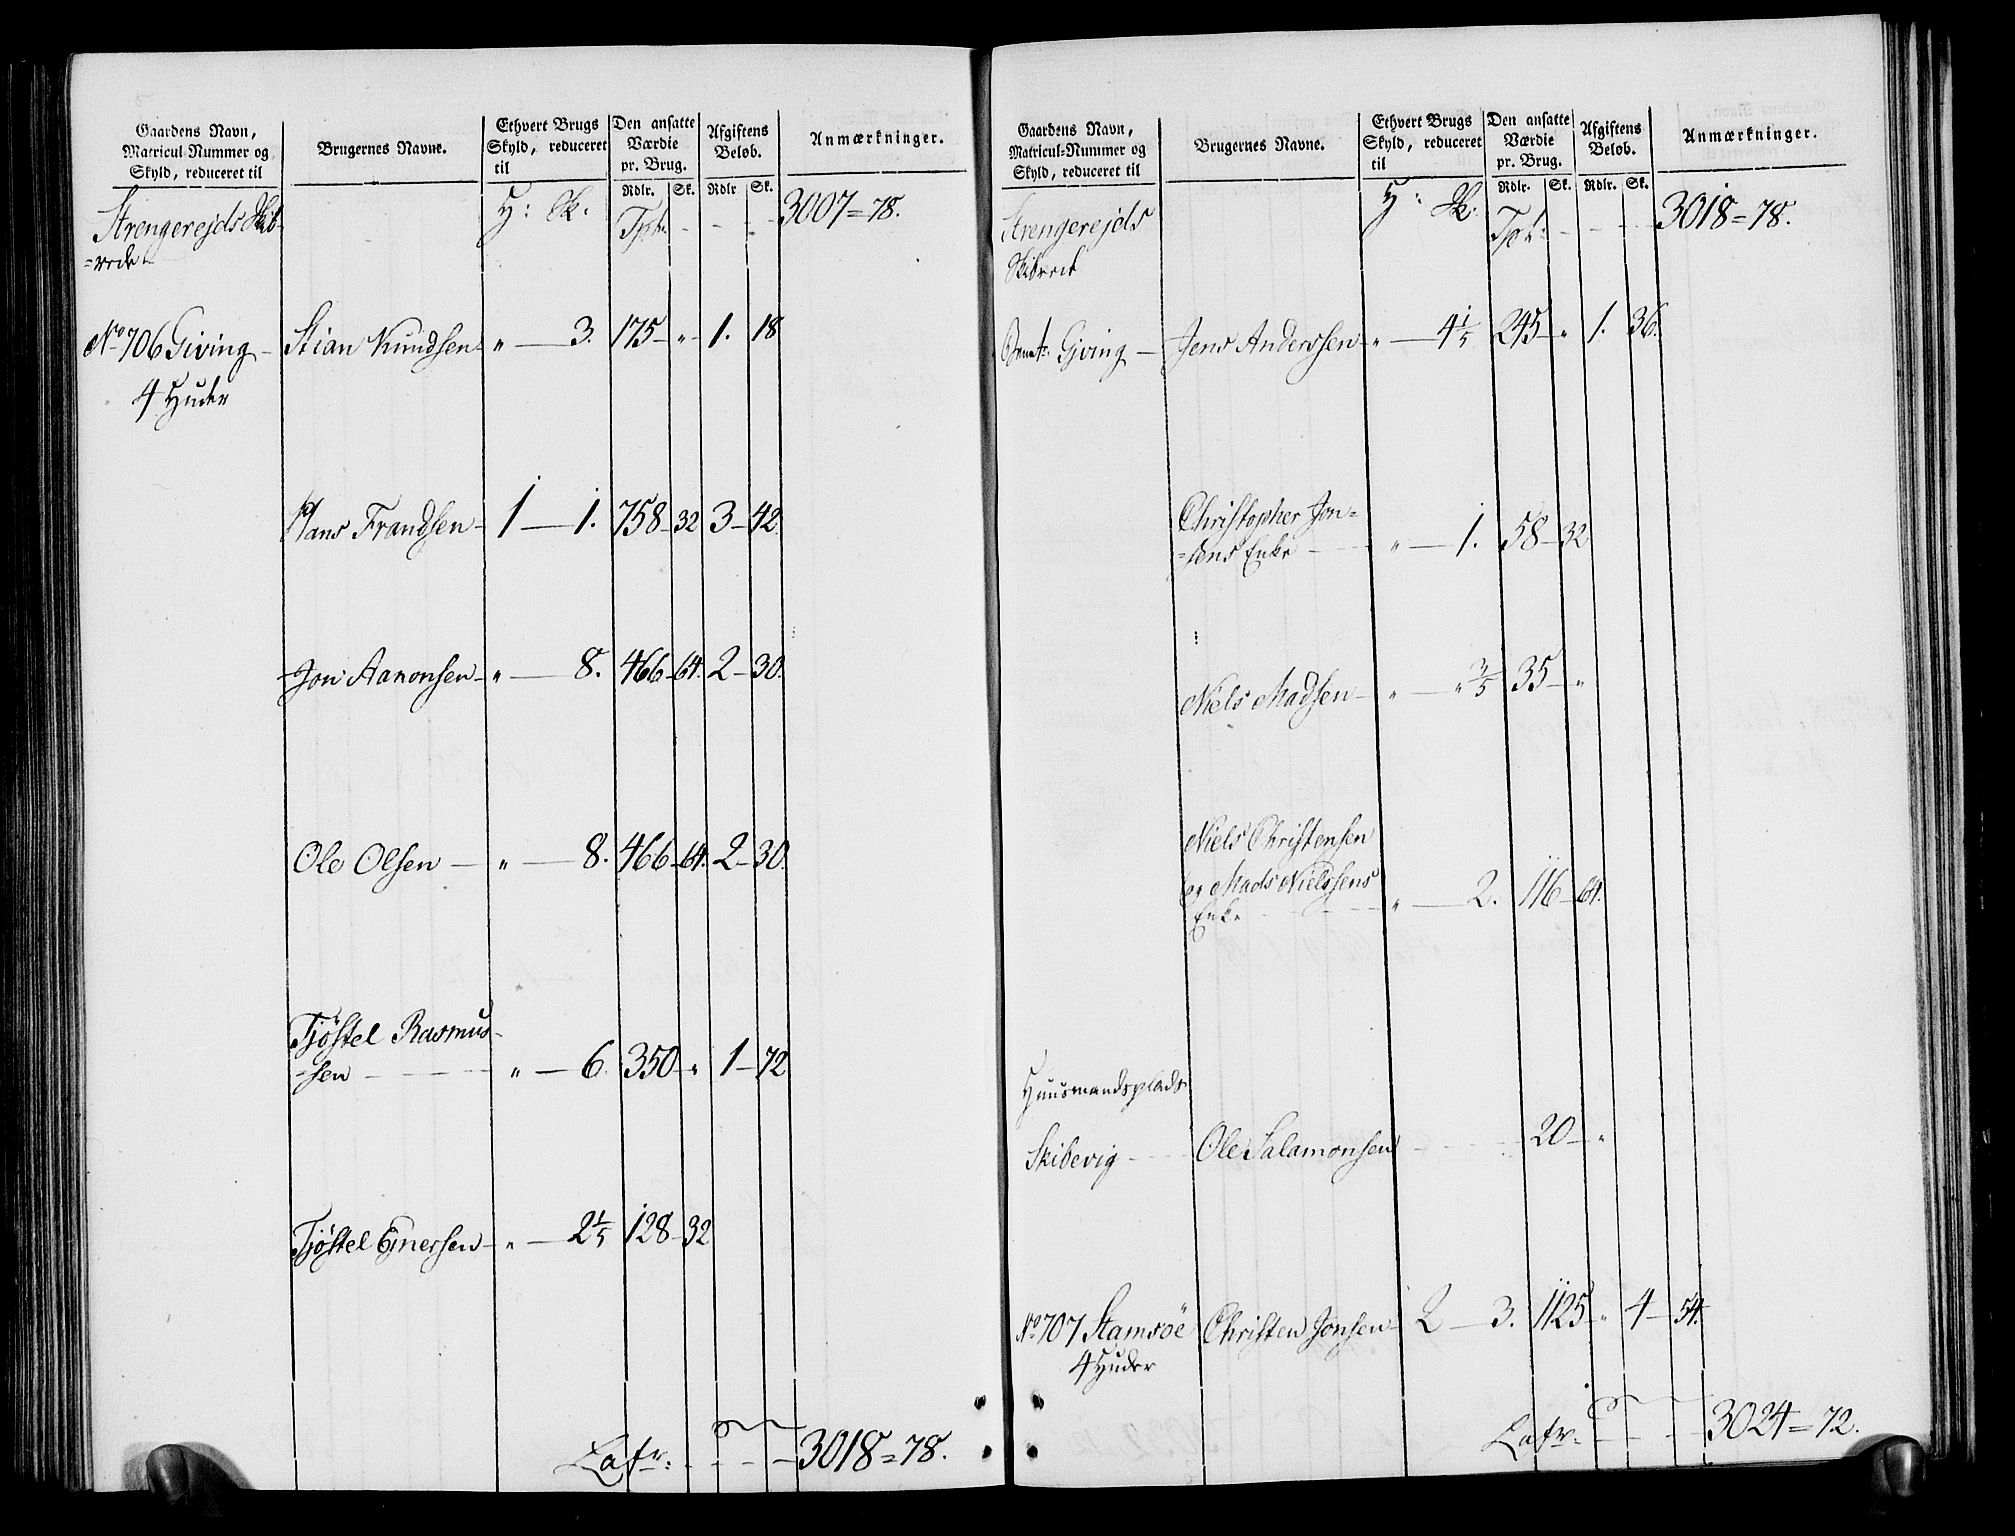 Gaardens Navn, Matricul-Nummer og Skyld, reduceret til
Brugernes Navne.
Ethvert Brugs Skyld, reduceret til
Den ansatte Værdie pr. Brug.
Afgiftens Beløb.
Anmærkninger.
Rdlr. Sk. Rdlr Sk.
Strengerejds Skib-
=rede
H: Sk: Tpt: - - - 3007=78.
No 706 Giving - Stian Knudsen - „ — 3. 175 - „ - 1. 18
4 Huder
Hans Frandsen - 1 — 1. 758 - 32 3 - 42.
Jon Aanonsen - „ — 8. 466 - 64. 2 - 30.
Ole Olsen — „ — 8. 466 - 64. 2 - 30.
Tjøstel Rasmus-
-sen - - - - „ — 6. 350 - „ 1 - 72
Tjøstel Ejnersen - „ — 2 1/5 128 - 32
Lafr: - - - 3018=78.
Gaardens Navn, Matricul-Nummer og Skyld, reduceret til
Brugernes Navne.
Ethvert Brugs Skyld, reduceret til
Den ansatte Værdie pr. Brug.
Afgiftens Beløb.
Anmærkninger.
Rdlr. Sk. Rdlr. Sk.
Strengerejds
Skibrede
H: Sk: Tpt: - - - 3018=78.
Giving — Jens Anderssen - „ — 4 1/5 245 - „ 1. 36.
Christopher Jon=
=sens Enke - - - „ — 1. 58 - 32
Niels Madsen - „ — „ 3/5 35 - „
Niels Christensen
og Mads Nielssens
Enke - - - „ — 2. 116 - 64.
Huusmandsplads
Skibevig - - - Ole Salamonsen - - - 20 - „
No 707 Stamsöe Christen Jonsen - 2 — 3. 1125 - „ 4 - 54.
4 Huder
Lafr: - - - 3024=72.